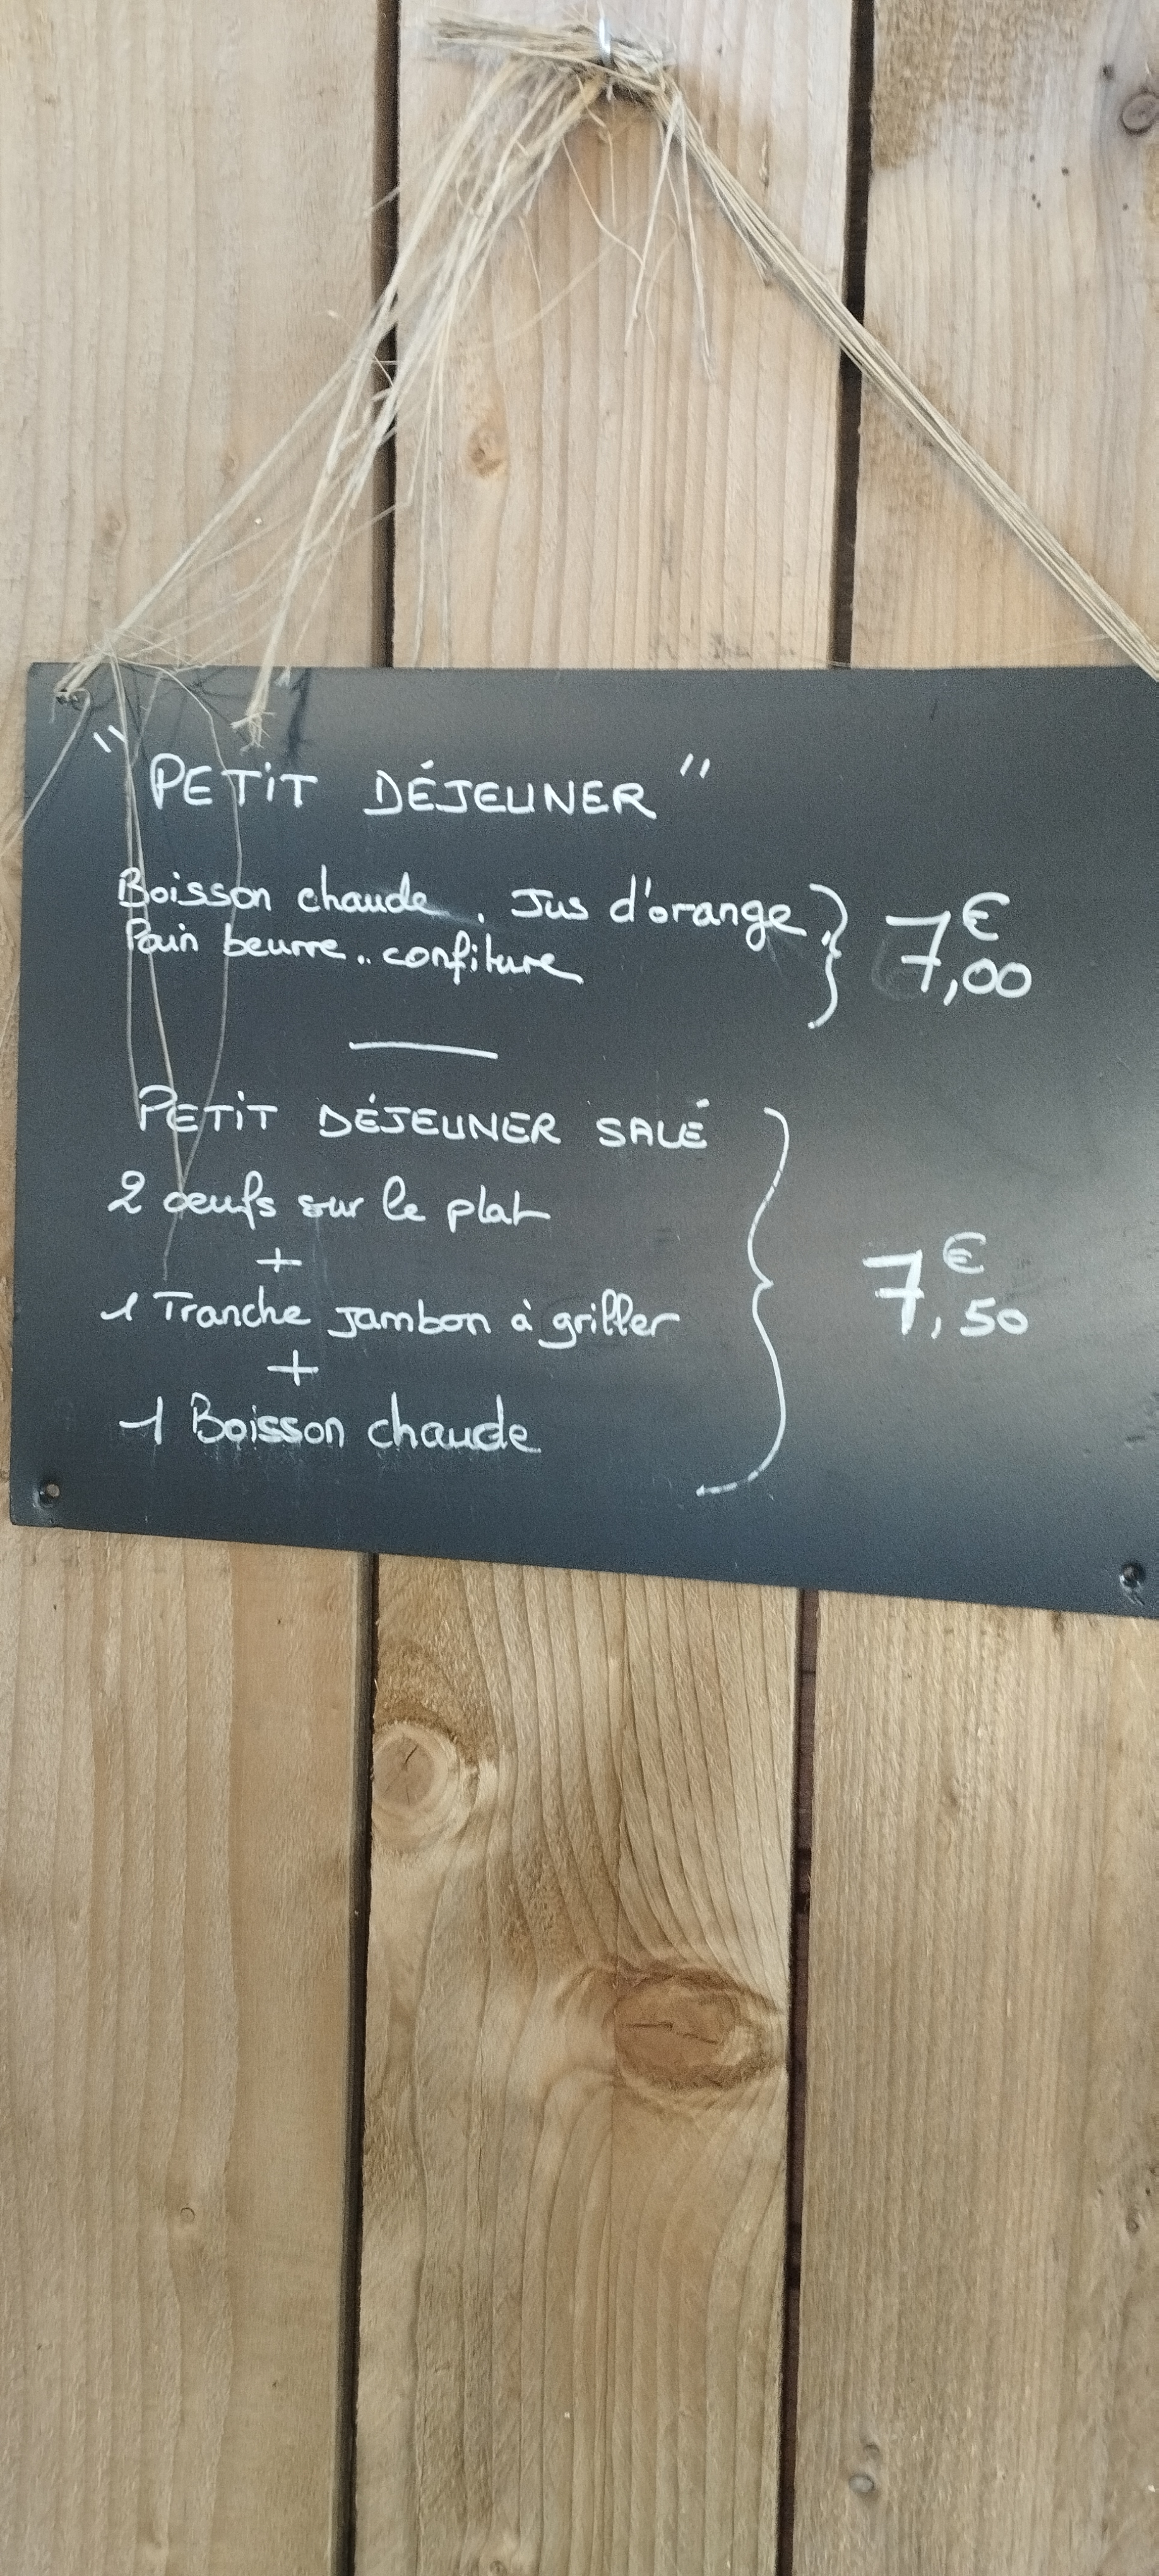 "PETIT DÉJEUNER"
Boisson chaude. Jus d'orange. 7€,00
Pain beurre.. confiture
PETIT DÉJEUNER SALÉ
2 oeufs sur le plat
+
1 Tranche jambon à griller 7€,50
+
1 Boisson chaude